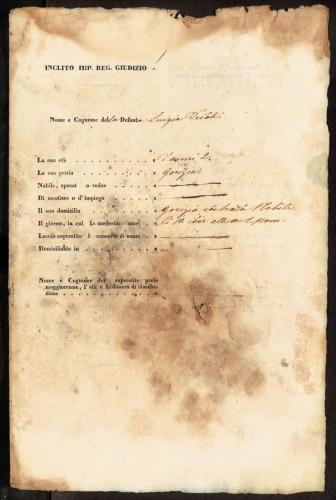 INCLITO IMP. REG. GIUDIZIO !
Nome e Cognome della Defunta Luigia
La sua età D'anni 2.
La sua patria Gorizia
Nubile, sposat o vedov
Di mestiere o d'impiego
Il suo domicilio Gorizia contrada Nobile
Il giorno, in cui la medesim morì Li 10 alle ore 2 pom
Lasciò superstite l consorte di nome
Domiciliante in
Nome e Cognome del superstite prole
maggiorenne, l' età e la dimora di ciasche-
duna